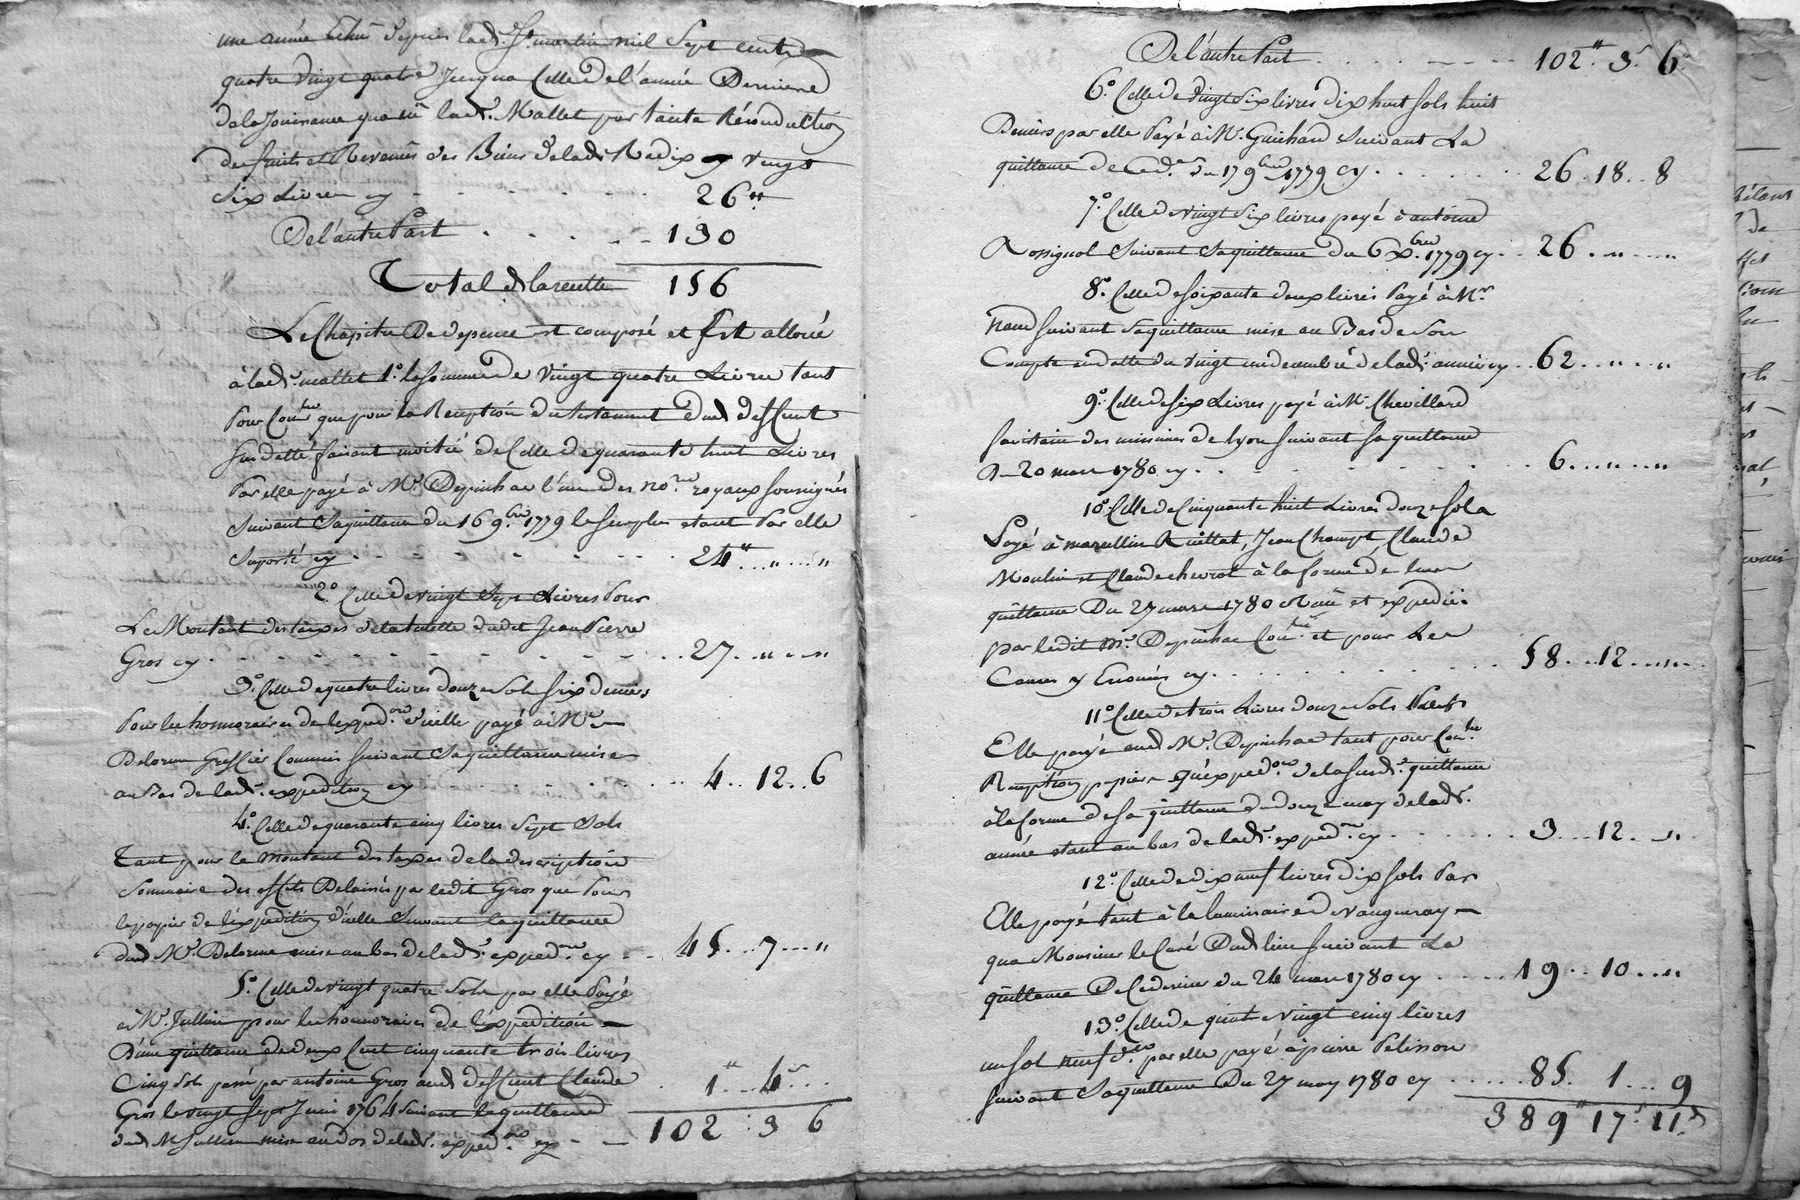 une année Echûe depuis lad. St martin mil sept cents
quatre vingt quatre Jusqua Celle de l'année Derniere
de la Jouissance qua eû lad. Mallet par tacite Réconduction
des fruits et Revenus des Biens de lad. Radix cy vingt
six Livres cy - - - - - 26"
De l'autre Part . . . . . 130
Total de la recette 156
Le Chapitre De depense est composé et Est alloüé
à lad. mallet 1.° la somme de vingt quatre Livres tant
Pour que pour la Reception du testament dud deffunt
sus datté faisant moitié de Celle de quarante huit Livres
Par elle payé à Me. Depinhac l'un des no.res royaux soussignés
suivant sa quittance du 16 9.bre 1779 le surplus etant Par elle
suporté cy - - - - - 24" .. " .. "
2.° Celle de vingt sept Livres Pour
Le Montant des taxes de la tutelle dudit Jean Pierre
Gros cy . - - - - - .. 27 .. " .. "
3.° Celle de quatre livres douze sols six deniers
Pour les honnoraires de l'exped.on d'icelle payé à Me
Delorme Greffier Commis suivant sa quittance mise
au Bas de lad. expedition cy . . . . 4 .. 12 .. 6
4.° Celle de quarante cinq livres sept sols
Tant pour le montant des taxes de la description
sommaire des effets Delaissés par ledit Gros que Pour
le papier de l'expedition d'icelle suivant la quittance
dud Me. Delorme mise au bas de lad. exped.on cy - - 45 .. 7 .. "
5.° Celle de vingt quatre sols par elle Payé
à Me. Jullien pour les honnoraires de l'expedition
D'une quittance de deux Cent cinquante trois livres
Cinq sols passé par antoine Gros aud deffunt Claude
Gros le vingt sept Juin 1764 suivant la quittance 1" .. 4s ..
dud Me Jullien mise au dos de lad. exped.on cy - - 102 : 3 6
De l'autre Part . . . . - - - 102" 3s 6d
6.° Celle de vingt six livres dix huit sols huit
Deniers par elle Payé à Me. Guichard suivant La
quittance de Ced.r du 17 9bre 1779 cy . . . . . 26 . 18 .. 8
7.° Celle de vingt six livres payé à antoine
Rossignol suivant sa quittance du 6 Xbre 1779 cy .. 26 .. " .. "
8.° Celle de soixante deux livres Payé à Mr.
suivant sa quittance mise au Bas de son
Compte en datte du vingt un decembre de lad. année cy .. 62 .. " .. "
9.° Celle de six Livres payé à Mr. Chevillard
sacristain des minimes de lyon suivant sa quittance
Du 20 mars 1780 cy . . - - - - - 6 .. " .. "
10.° Celle de Cinquante huit Livres douze sols
Payé à marcellin Jean Claude
Moulin et Claude à la forme de leur
quittance Du 27 mars 1780 Recüe et expediée
par ledit Me. Depinhac et pour Les
Causes y Enoncées cy . . . . . 58 .. 12 .. "
11.° Celle de trois Livres douze sols Par
Elle payé aud Me. Depinhac tant pour
Reception papier exped.on de la susd. quittance
à la forme de sa quittance du douze may de lad.
année etant au bas de lad. exped.on cy . . . . 3 .. 12 .. "
12.° Celle de dix neuf livres dix sols Par
Elle payé tant à la luminaire de Vaugneray
qua Monsieur le Curé Dud lieu suivant La
quittance De Ce dernier du 24 mars 1780 cy . . . 19 .. 10 .. "
13.° Celle de quatre vingt cinq livres
un sol neuf d.ers par elle payé à pierre Pelisson
suivant sa quittance Du 27 may 1780 cy . . . . 85 . 1 .. 9
389" 17s 11d